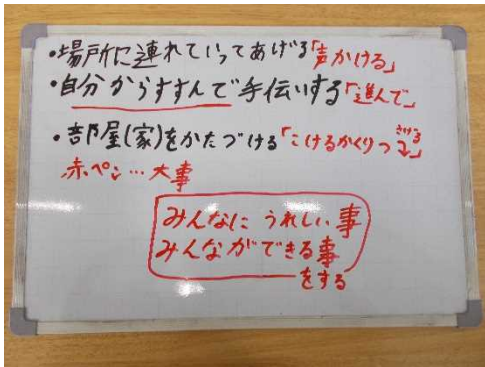 ・場所に連れていってあげる「声かける」
・自分からすすんで手伝いする「進んで」
・部屋(家)をかたづける「こけるかくりつ さける」
赤ペン…大事
みんなに うれしい事
みんなができる事
をする